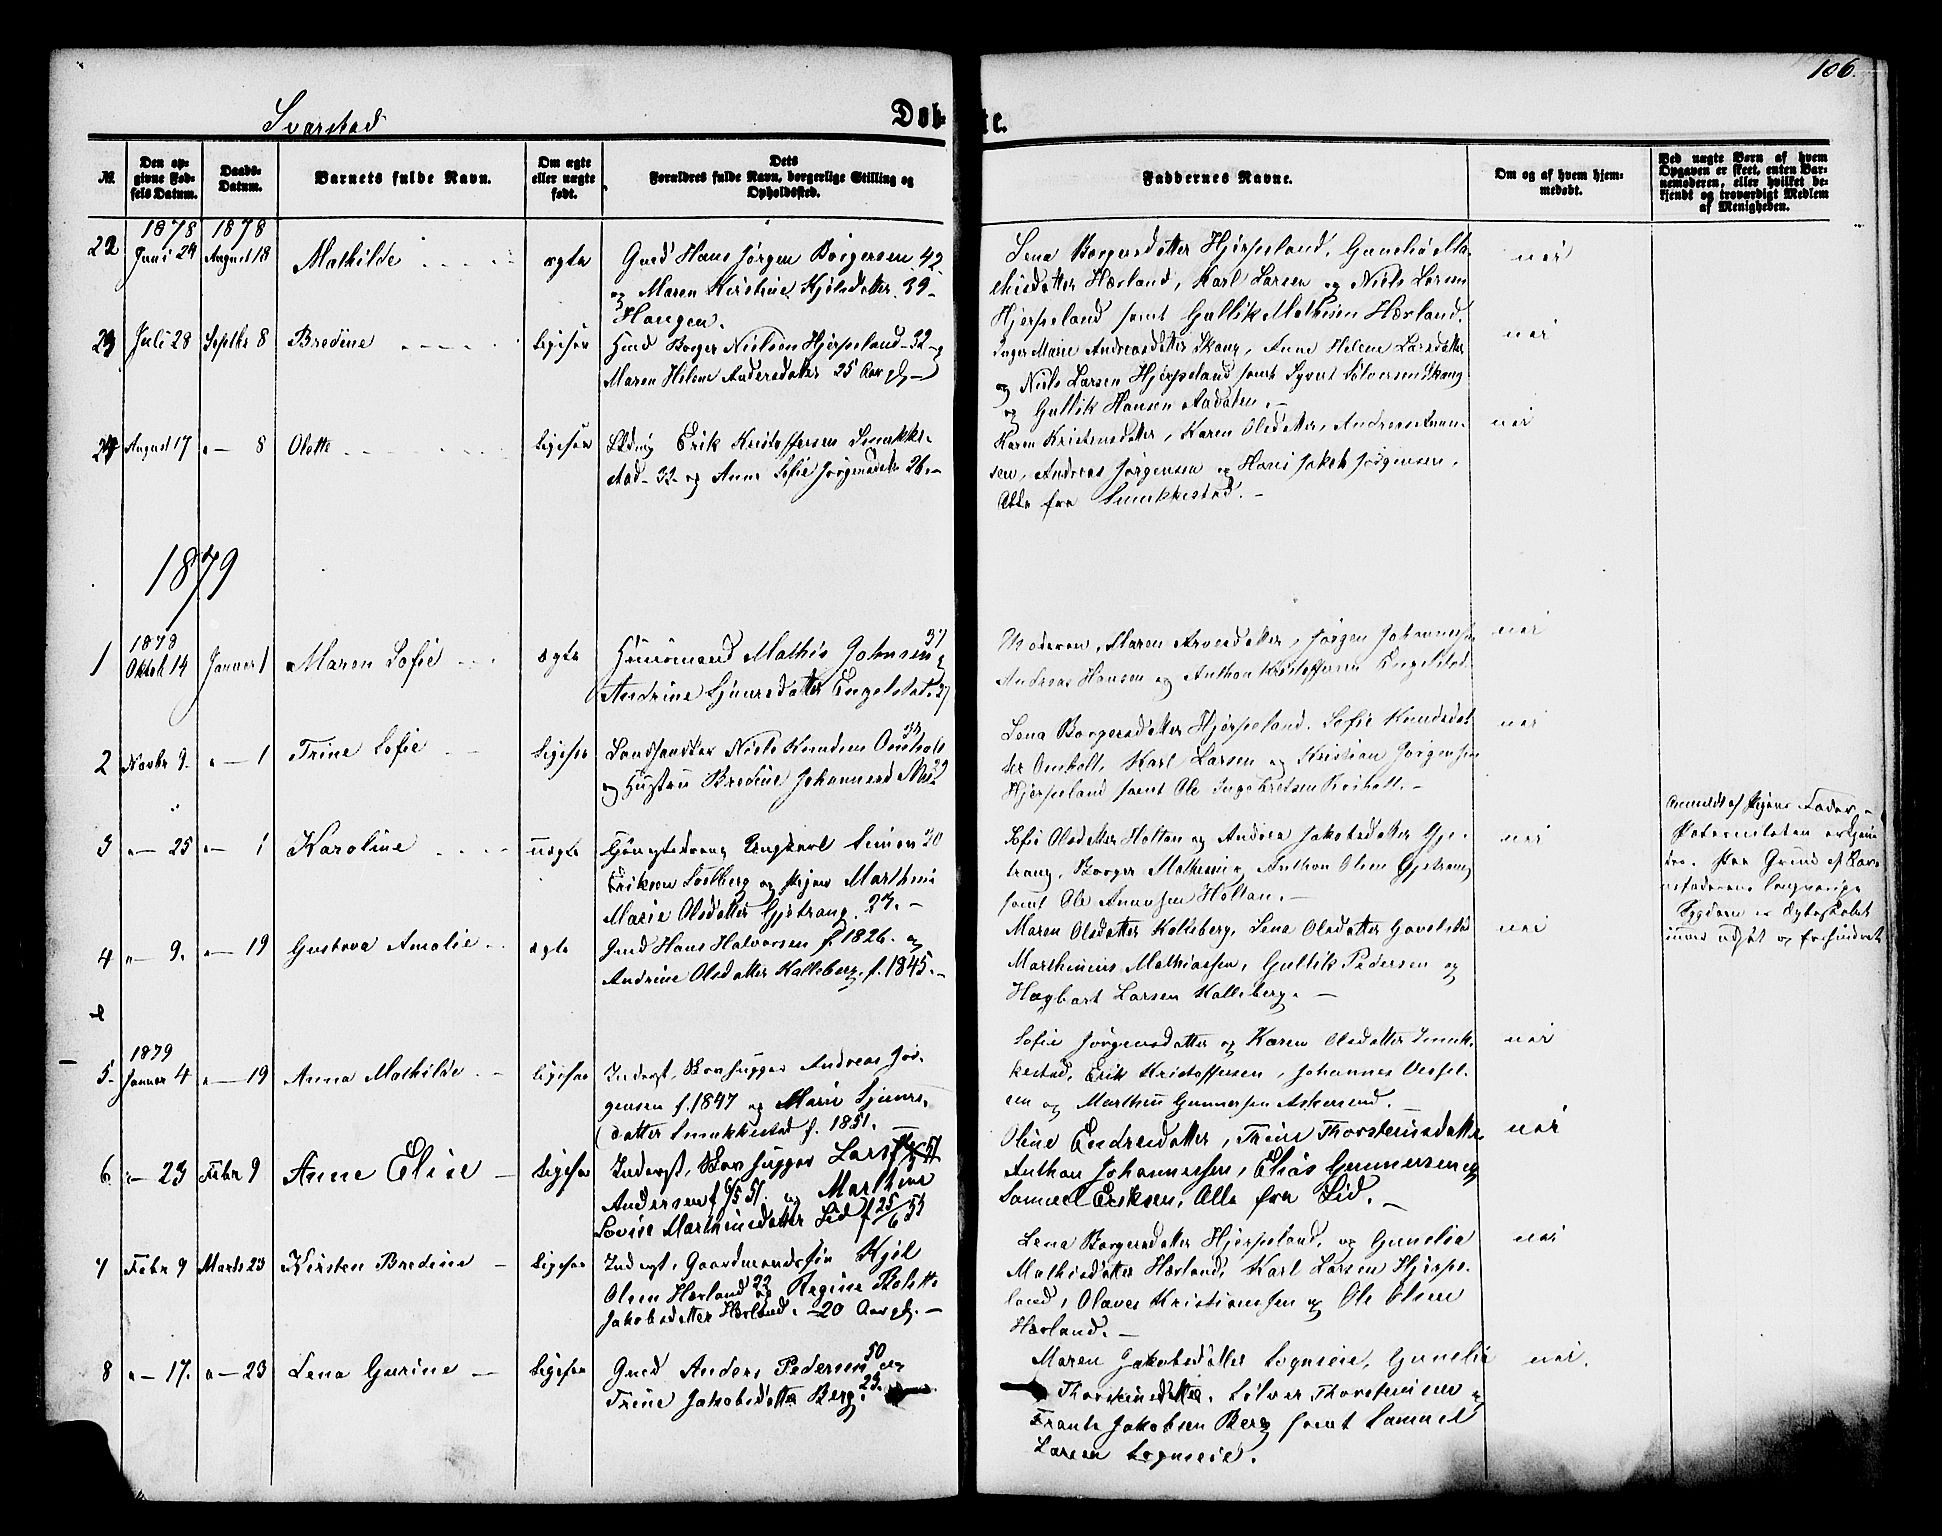 106.
Svarstad
Døb- te.
№
Den opgivne Fødsels Datum.
Daabs-Datum.
Barnets fulde Navn.
Om ægte eller uægte født.
Dets
Forældres fulde Navn, borgerlige Stilling og Opholdssted.
Faddernes Navne.
Om og af hvem hjemmedøbt.
Ved uægte Børn af hvem Opgaven er skeet, enten Barnemoderen, eller hvilket bekjendt og troværdigt Medlem af Menigheden.
1878 1878
22 Juni 24 August 18 Mathilde ægte
Gmd Hans Jørgen Borgersen 42
og Maren Kirstine Kjølsdatter 39 -
Haugen.
Lena Borgersdatter Hjerpeland, Gunelia Ma-
thisdatter Hærland, Karl Larsen og Niels Larsen
Hjerpeland samt Gullik Mathisen Hærland.
nei
23 Juli 28 Septbr 8 Bredine ligesaa
Borger Nielsen Hjerpeland - 32 - og
Maren Helene Andersdatter 25 Aar gl -
Inger Marie Andreasdatter Skaug, Anne Helene Larsdatter
og Niels Larsen Hjerpeland samt Syvert Sølversen Skaug
og Gullik Hansen Aadalen. -
nei
24 August 17 " - 8 Olette ligesaa
Erik Kristoffersen Smukke-
stad - 32 - og Anne Sofie Jørgensdatter 26. -
Karen Kristensdatter, Karen Olsdatter, Andreas Gunner-
sen, Andreas Jørgensen og Hans Jakob Jørgensen.
Alle fra Smukkestad. -
nei
1879
1878
1 Oktob 14 Januar 1 Maren Sofie ægte
Huusmand Mathis Johnsen 37 og
Andrine Sjursdatter Engelstad. 37
Moderen, Maren Arvesdatter, Jørgen Johannessen
Andreas Hansen og Anthon Kristoffersen Engelstad.
nei
2 Novbr 9. " - 1 Trine Sofie ligesaa
Landhandler Niels Knudsen Omholt 33
og Hustru Bredine Johannesd
Lena Borgersdatter Hjerpeland. Sofie Knudsdat-
ter Omholt, Karl Larsen og Kristian Jørgensen
Hjerpeland samt Ole Ingebretsen
nei
3 " - 25 " - 1 Karoline uægte
Ungkarl Simon 20
Eriksen Solberg og Pigen Marthine
Marie Olsdatter Gjetrang. 27. -
Sofie Olsdatter Holtan og Andrea Jakobsdatter Gje-
trang, Borger Mathisen og Anthon Olsen Gjetrang
samt Ole Holtan. -
nei
Anmeldt af Pigens Fader, -
Paa Grund af Barne-
faderens langvarige
Sygdom
4 " - 9. " - 19 Gustava Amalie - ægte
Gmd Hans Halvorsen f. 1826. og
Andrine Olsdatter Kalleberg. f. 1845. -
Maren Olsdatter Kalleberg, Lena Olsdatter
Marthinius Mathiassen, Gullik Pedersen og
Hagbart Larsen Kalleberg. -
nei
1879
5 Januar 4 " - 19 Anna Mathilde - ligesaa
Inderst, Skovhugger Andreas Jør-
gensen f. 1847 og Marie Sjurs-
datter Smukkestad f. 1851. -
Sofie Jørgensdatter og Karen Olsdatter Smuk-
kestad, Erik Kristoffersen, Johannes Vessel-
sen og Marthin Gunnersen
nei
6 " - 23 Febr 9 Anne Elise - ligesaa
Inderst, Skovhugger Lars
Andersen f 51. og Marthine
Lovise Marthinsdatter Lid f 25/6 55
Oline Endresdatter, Trine Thorsteinsdatter
Anthon Johannessen, Elias Gunnersen og
Samuel Eriksen, Alle fra Lid. -
nei
7 Febr 9 Marts 23 Kirsten Bredine - ligesaa
Inderst, Gaardmandssøn Kjøl
Olsen Hærland 22 og Regine Bolette
Jakobsdatter Hærland. - 20 Aar gl. -
Lena Borgersdatter Hjerpeland, og Gunelia
Mathisdatter Hærland, Karl Larsen Hjerpe-
land, Olaves Kristianssen og Ole Olsen
Hærland. -
nei
8 " - 17. " - 23 Lena Gurine - ligesaa
Gmd Anders Pedersen 50 og
Trine Jakobsdatter Berg. 23.
Maren Jakobsdatter Sogneeie, Gunelie
Thorsteinsdatter. Sølver Thorsteinsen og
Frants Jakobsen Berg samt Samuel
Larsen Sogneeie.
nei.